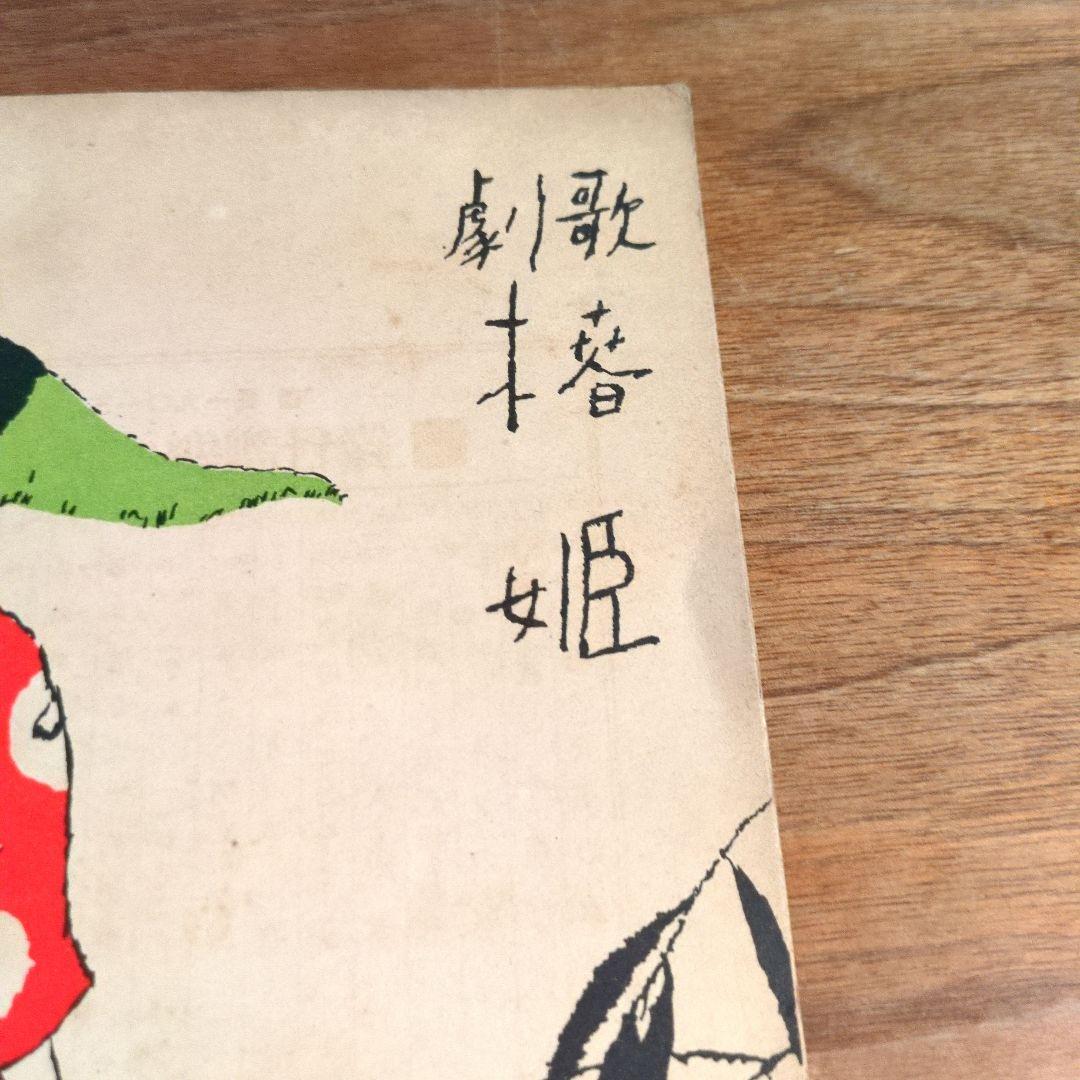 歌劇
椿
姫